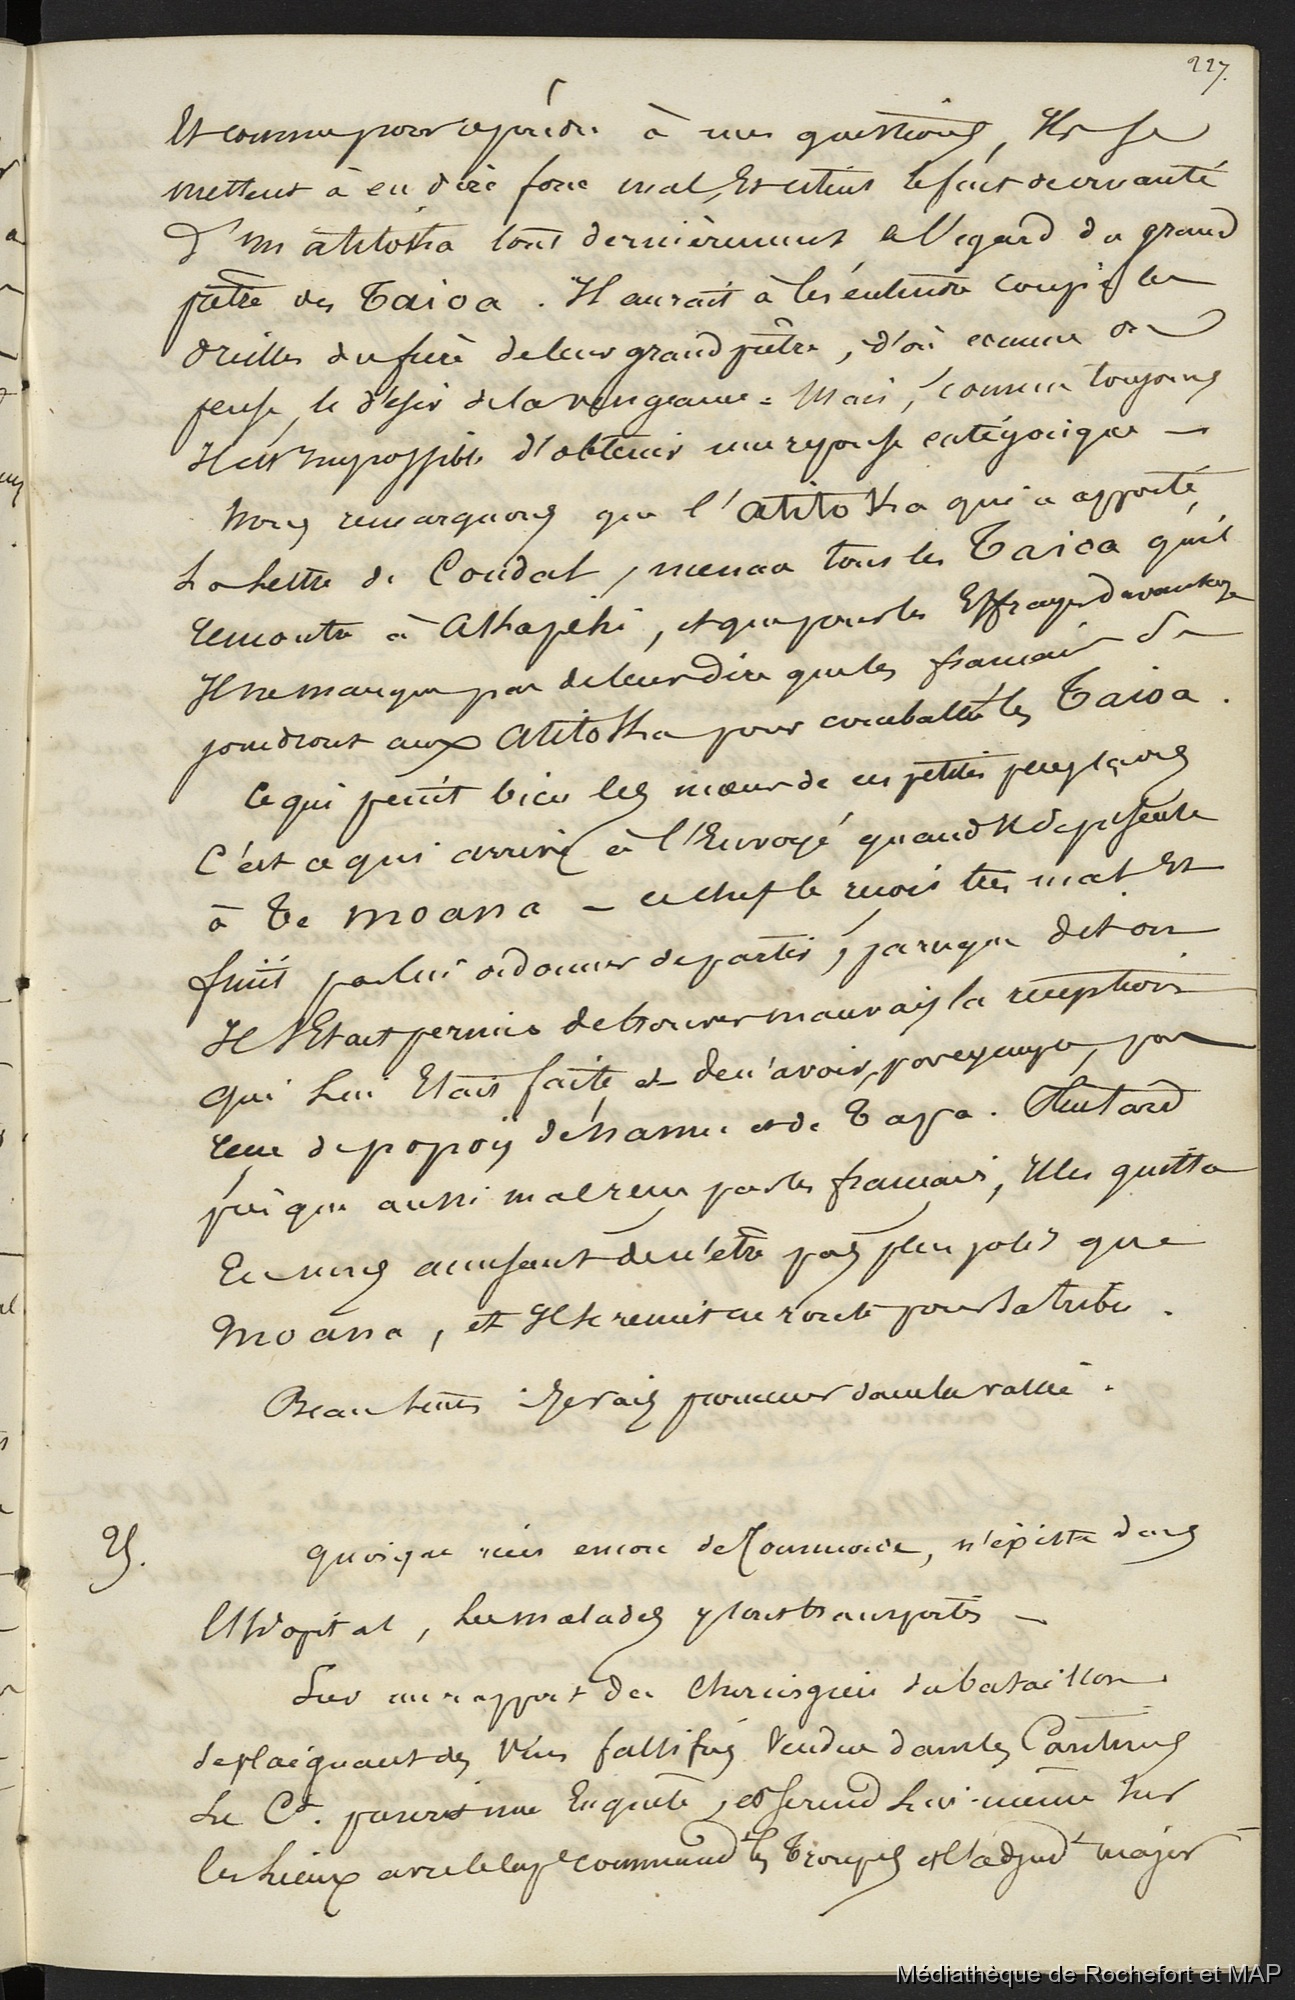 227.
Et comme pour répondre à mes questions, Ils se
mettent à en dire fort mal, Et citent le fait de cruauté
d'un atitoka tout dernièrement à l'égard du grand
prêtre des Taioa. Il aurait à les entendre coupé les
oreilles du frère de leur grand prêtre, d'où comme on
pense, le désir de la vengeance = Mais, comme toujours
Il est Impossible d'obtenir une réponse catégorique –
Nous remarquons que l'atitoka qui a apporté
La Lettre de Coudat, menaça tous les Taioa qu'il
rencontra à Akapehi, et que pour les Effrayer davantage
Il ne manqua pas de leur dire que les français se
joindront aux atitoka pour combattre les Taioa.
Ce qui peint bien les mœurs de ces petites peuplades
C'est ce qui arriva à l'Envoyé quand Il se présenta
à Te moana – ce chef le reçoit très mal Et
finit par lui ordonner de partir, parceque dit on
Il s'Etait permis de trouver mauvais la réception
qui Lui Etait faite et de n'avoir, par exemple, pas
reçu de popoy de namu et de Tapa. Plutard
presque aussi mal reçu par les français, Il les quitta
En nous accusant de n'être pas plus polis que
Moana, et Il se remit en route pour sa tribu.
Beau tems : Je vais promener dans la vallée.
25. quoique rien encore de Commencé, n'existe dans
l'Hopital, Les malades y sont transportés –
Sur un rapport du Chirurgien du bataillon
se plaignant des Vins falsifiés Vendus dans les Cantines
Le Ct. prescrit une Enquête, et se rend Lui-même sur
les Lieux avec le Cape commandt les Troupes et l'adjudt major
Médiathèque de Rochefort et MAP